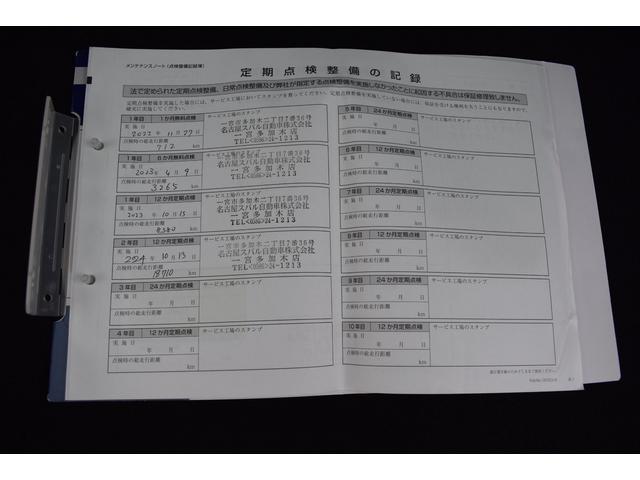 メンテナンスノート(点検整備記録簿)
定期点検整備の記録
法で定められた定期点検整備、日常点検整備及び弊社が指定する点検整備を実施しなかったことに起因する不具合は保証修理致しません。
定期点検整備を実施した場合には、サービス工場においてスタンプを押してください。定期点検整備を実施していない場合には、保証を受ける権利を失うことにもなりますので、
確実に実施してください。
1年目 1か月無料点検
サービス工場のスタンプ
実施日
2022年11月27日
点検時の総走行距離
712 km
一宮市多加木二丁目7番36号
名古屋スバル自動車株式会社
一宮多加木店
TEL<0586>24-1213
1年目 6か月無料点検
サービス工場のスタンプ
実施日
2023年4月9日
点検時の総走行距離
3265 km
一宮市多加木二丁目7番36号
名古屋スバル自動車株式会社
一宮多加木店
TEL<0586>24-1213
1年目 12か月定期点検
サービス工場のスタンプ
実施日
2023年10月15日
点検時の総走行距離
km
一宮市多加木二丁目7番36号
名古屋スバル自動車株式会社
一宮多加木店
TEL<0586>24-1213
2年目 12か月定期点検
サービス工場のスタンプ
実施日
年10月13日
点検時の総走行距離
18710 km
一宮市多加木二丁目7番36号
名古屋スバル自動車株式会社
一宮多加木店
TEL<0586>24-1213
3年目 24か月定期点検
サービス工場のスタンプ
実施日
年 月 日
点検時の総走行距離
km
4年目 12か月定期点検
サービス工場のスタンプ
実施日
年 月 日
点検時の総走行距離
km
5年目 24か月定期点検
サービス工場のスタンプ
実施日
年 月 日
点検時の総走行距離
km
6年目 12か月定期点検
サービス工場のスタンプ
実施日
年 月 日
点検時の総走行距離
km
7年目 24か月定期点検
サービス工場のスタンプ
実施日
年 月 日
点検時の総走行距離
km
8年目 12か月定期点検
サービス工場のスタンプ
実施日
年 月 日
点検時の総走行距離
km
9年目 24か月定期点検
サービス工場のスタンプ
実施日
年 月 日
点検時の総走行距離
km
10年目 12か月定期点検
サービス工場のスタンプ
実施日
年 月 日
点検時の総走行距離
km